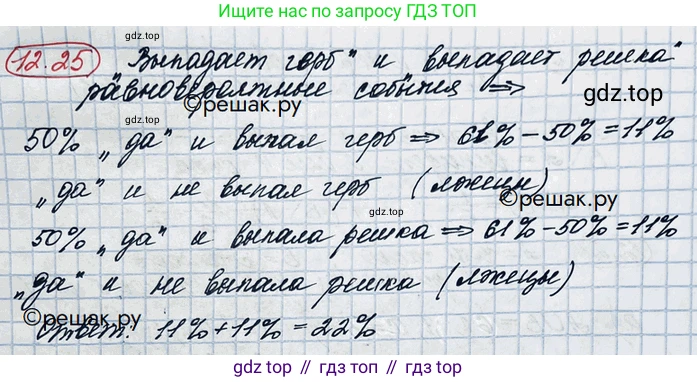 Ищите нас по запросу ГДЗ ТОП
12.25 „Выпадает герб" и „выпадает решка"
равновероятные события ⇒
©решак.ру
gdz.top
50% „да" и выпал герб ⇒ 61% - 50% = 11%
„да" и не выпал герб (лжецы)
©решак.ру
gdz.top
50% „да" и выпала решка ⇒ 61% - 50% = 11%
„да" и не выпала решка (лжецы)
©решак.ру
Ответ: 11% + 11% = 22%
gdz.top // gdz.top // gdz.top